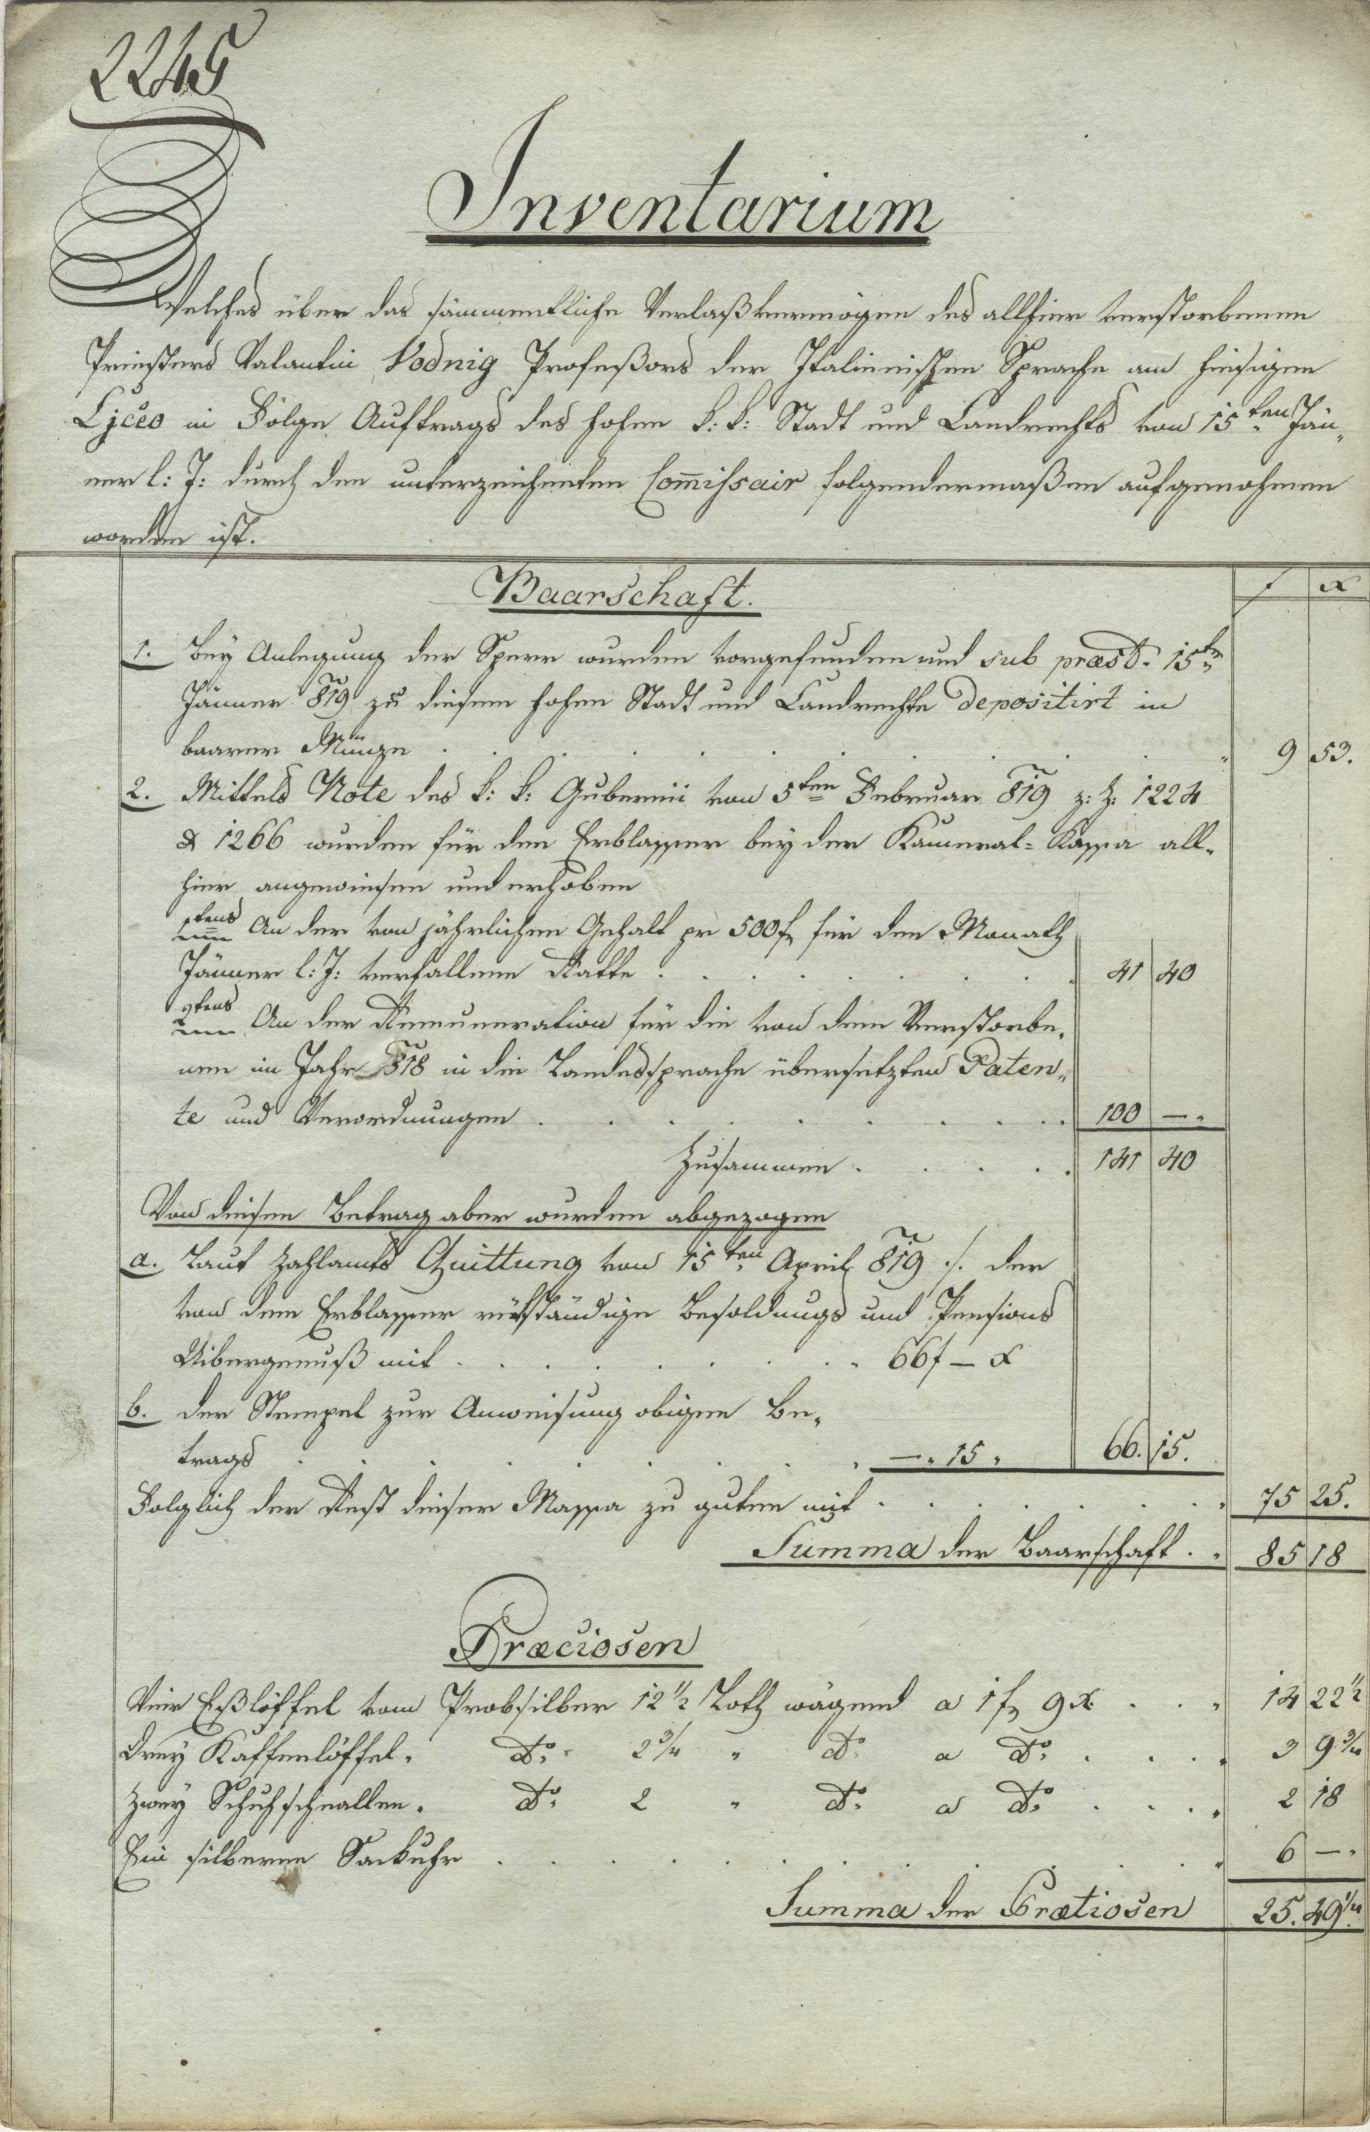 2245
Inventarium
Welches über das sämmentliche Verlaßvermögen des allhier verstorbenen
Priesters Valantin Vodnig Profeßors der Italienischen Sprache am hiesigen
Lÿceo in Folge Auftrags des hohen k: k: Stadt und Landrechts von 15ten Jän„
ner l: J: durch den unterzeichenten Com̅issair folgendermaßen aufgenohmen
worden ist.
Baarschaft. f x
1. Bey Anlegung der Sperr wurden vorgefunden und sub præst. 15ten
Jänner 819 zu diesem hohen Stadt und Landrechte depositirt in
baarer Münze . . . . . . . . 9 53.
2. Mittels Note des k: k: Gubernii von 5ten Februar 819 z: Z: 1224
& 1266 wurden für den Erblasser bey der Kameral-Kassa all„
hier angewiesen und erhoben
1tens An der von jährlichen Gehalt pr 500f für den Monath
Jänner l: J: verfallene Ratte . . . . . . 41 40
2tens An der Remuneration für die von dem Verstorbe„
nen im Jahr 818 in die Landessprache übersetzten Paten„
te und Verordnungen . . . . . . . . 100 —„
Zusammen . . . . 141 40
Von diesen Betrag aber wurden abgezogen
a. Laut Zahlamts Quittung von 15ten April 819 ./. der
von dem Erblasser rükständige Besoldungs und Pensions
Uibergenuß mit . . . . . . . 66f — x
b. der Stempel zur Anweisung obigen Be„
trags . . . . . . . —„ 15 „ 66. 15.
Folglich der Rest dieser Massa zu guten mit . . . . . . 75 25.
Summa der Baarschaft . . 85 18
Præciosen
Vier Eßlöffel vom Probsilber 12 1/2 Loth wägend a 1f 9x . . . 14 22 1/2
Drey Kaffeelöffel „ do. 2 3/4 „ do. a do. . . . . 3 9 3/4
Zwey Schuhschnallen „ do. 2 „ do. a do. . . . . 2 18
Ein silberne Sackuhr . . . . . . . . . . 6 —„
Summa der Prætiosen 25. 49 1/4